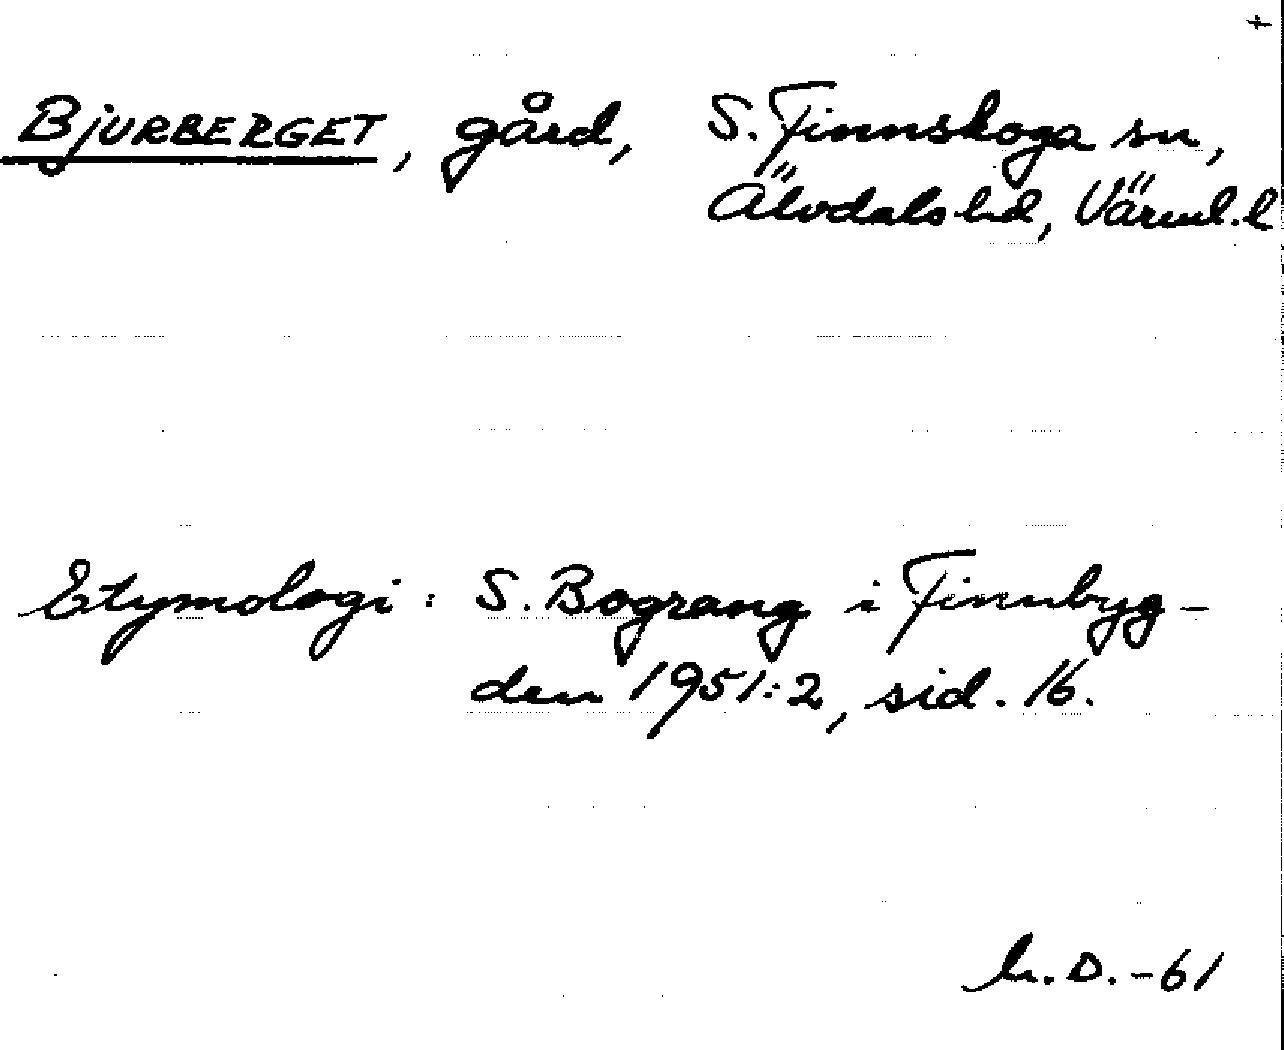 BJURBERGET, gård, S. Finnskoga sn,
Älvdals hd, Värml. l
Etymologi: S. Bograng i Finnbyg-
den 1951:2, sid. 16.
h. D. -61